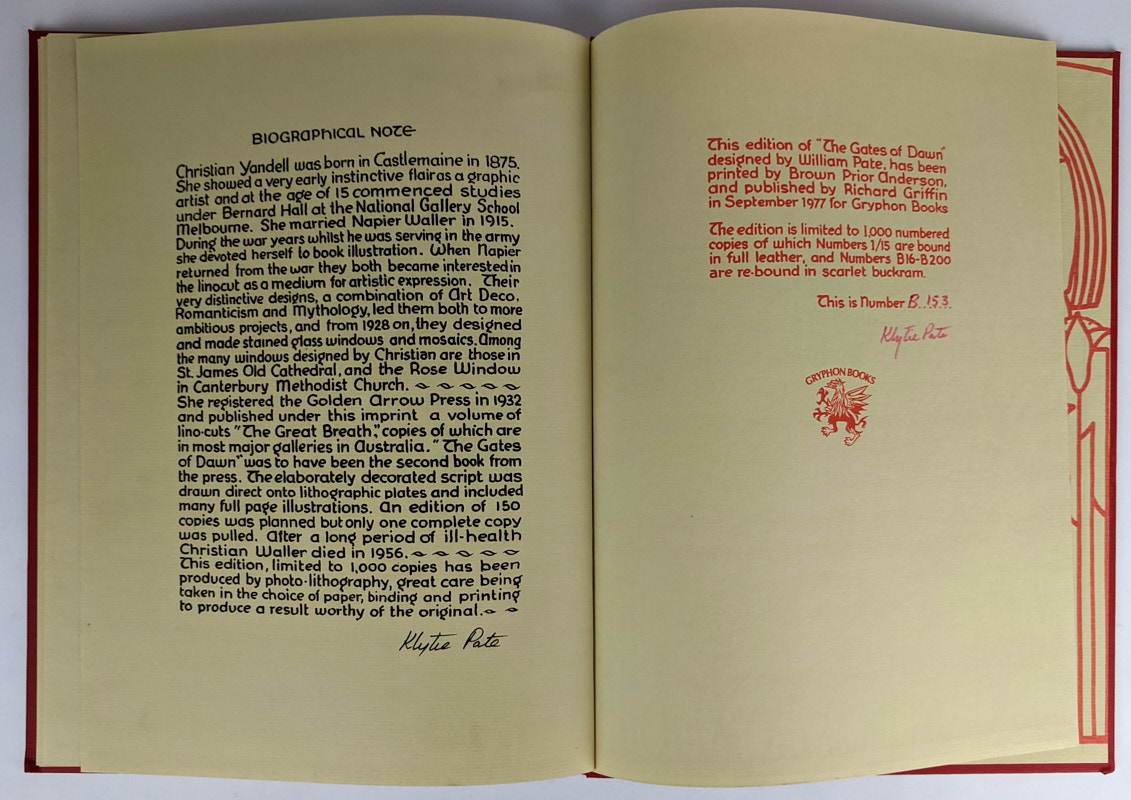 BIOGRAPHICAL NOTE
Christian Yandell was born in Castlemaine in 1875.
She showed a very early instinctive flair as a graphic
artist and at the age of 15 commenced studies
under Bernard Hall at the National Gallery School
Melbourne. She married Napier Waller in 1915.
During the war years whilst he was serving in the army
she devoted herself to book illustration. When Napier
returned from the war they both became interested in
the linocut as a medium for artistic expression. Their
very distinctive designs, a combination of Art Deco,
Romanticism and Mythology, led them both to more
ambitious projects, and from 1928 on, they designed
and made stained glass windows and mosaics. Among
the many windows designed by Christian are those in
St. James Old Cathedral, and the Rose Window
in Canterbury Methodist Church.
She registered the Golden Arrow Press in 1932
and published under this imprint a volume of
lino-cuts "The Great Breath", copies of which are
in most major galleries in Australia. "The Gates
of Dawn" was to have been the second book from
the press. The elaborately decorated script was
drawn direct onto lithographic plates and included
many full page illustrations. An edition of 150
copies was planned but only one complete copy
was pulled. After a long period of ill-health
Christian Waller died in 1956.
This edition, limited to 1,000 copies has been
produced by photo-lithography, great care being
taken in the choice of paper, binding and printing
to produce a result worthy of the original.
Klytie Pate
This edition of "The Gates of Dawn"
designed by William Pate, has been
printed by Brown Prior Anderson,
and published by Richard Griffin
in September 1977 for Gryphon Books
The edition is limited to 1,000 numbered
copies of which Numbers 1/15 are bound
in full leather, and Numbers B16-B200
are re-bound in scarlet buckram.
This is Number B.153.
Klytie Pate
GRYPHON BOOKS